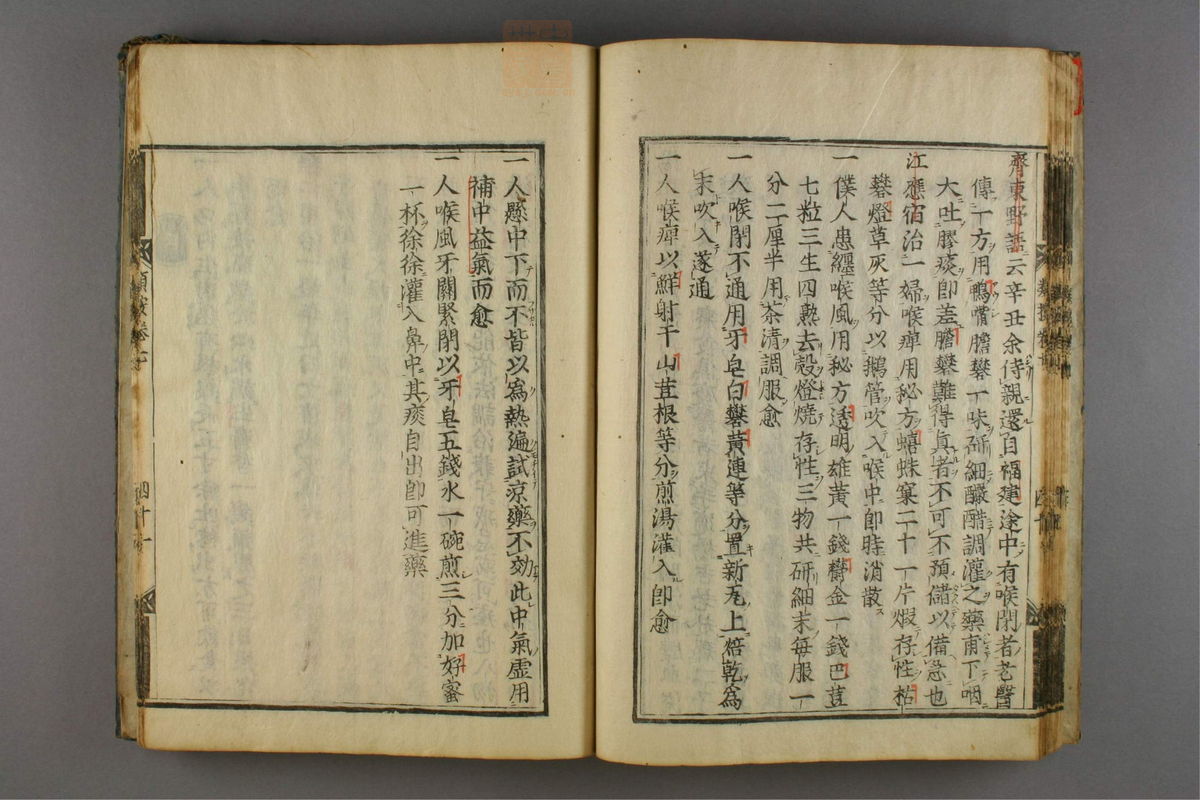 齊東野語云辛丑余侍親還自福建途中有喉閉者老醫
傳一方用鴨嘴膽礬一味研細釅醋調灌之藥甫下咽
大吐膠痰即差膽礬難得真者不可不預儲以備急也
江應宿治一婦喉痺用秘方蟢蛛窠二十一片煆存性枯
礬燈草灰等分以鵝管吹入喉中即時消散
一僕人患纏喉風用秘方透明雄黃一錢欝金一錢巴荳
七粒三生四熟去殼燈燒存性三物共研細末每服一
分二厘半用茶清調服愈
一人喉閉不通用牙皂白礬黃連等分置新瓦上焙乾為
末吹入遂通
一人喉痺以鮮射干山荳根等分煎湯灌入即愈
一人懸中下而不皆以為熱遍試凉藥不効此中氣虛用
補中益氣而愈
一人喉風牙關緊閉以牙皂五錢水一碗煎三分加好蜜
一杯徐徐灌入鼻中其痰自出即可進藥
類案卷七
四十一